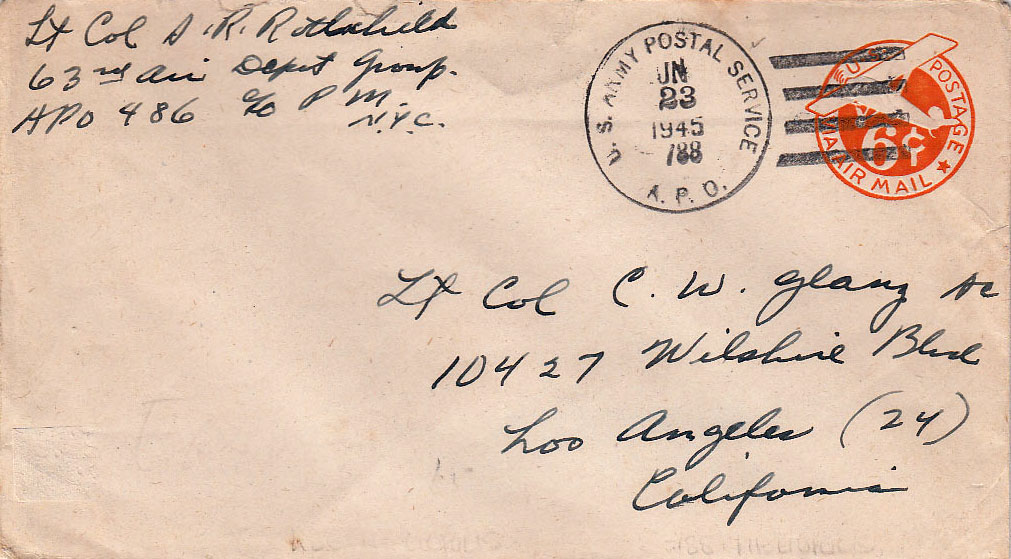 Lt Col A. R. Rothschild
63rd Air Depot Group.
APO 486 c/o P.M.
N.Y.C.
U.S. ARMY POSTAL SERVICE
JN
23
1945
788
A.P.O.
U.S. POSTAGE
6¢
VIA AIR MAIL
Lt Col C. W. Glanz
10427 Wilshire Blvd
Los Angeles (24)
California